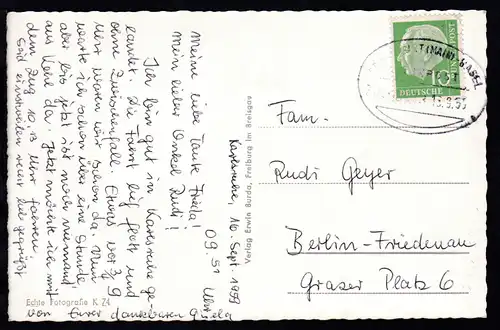 Karlsruhe, 10. Sept. 1959
09.51 Uhr
Meine liebe Tante Frieda!
Mein lieber Onkel Rudi!
Ich bin gut in Karlsruhe ge-
landet. Die Fahrt lief flott und
ohne Zwischenfall. Etwas vor 3/4 9
Uhr waren wir schon da. Nun
warte ich schon über eine Stunde,
aber bis jetzt ist noch niemand
aus Kehl da. Jetzt möchte ich mit
dem Zug 10.13 Uhr fahren.
Seid einstweilen recht lieb gegrüßt
von Eurer dankbaren Gisela
Echte Fotografie K Z4
Verlag Erwin Burda, Freiburg im Breisgau
DEUTSCHE
POST
BASEL
Fam.
Rudi Geyer
Berlin-Friedenau
Grazer Platz 6